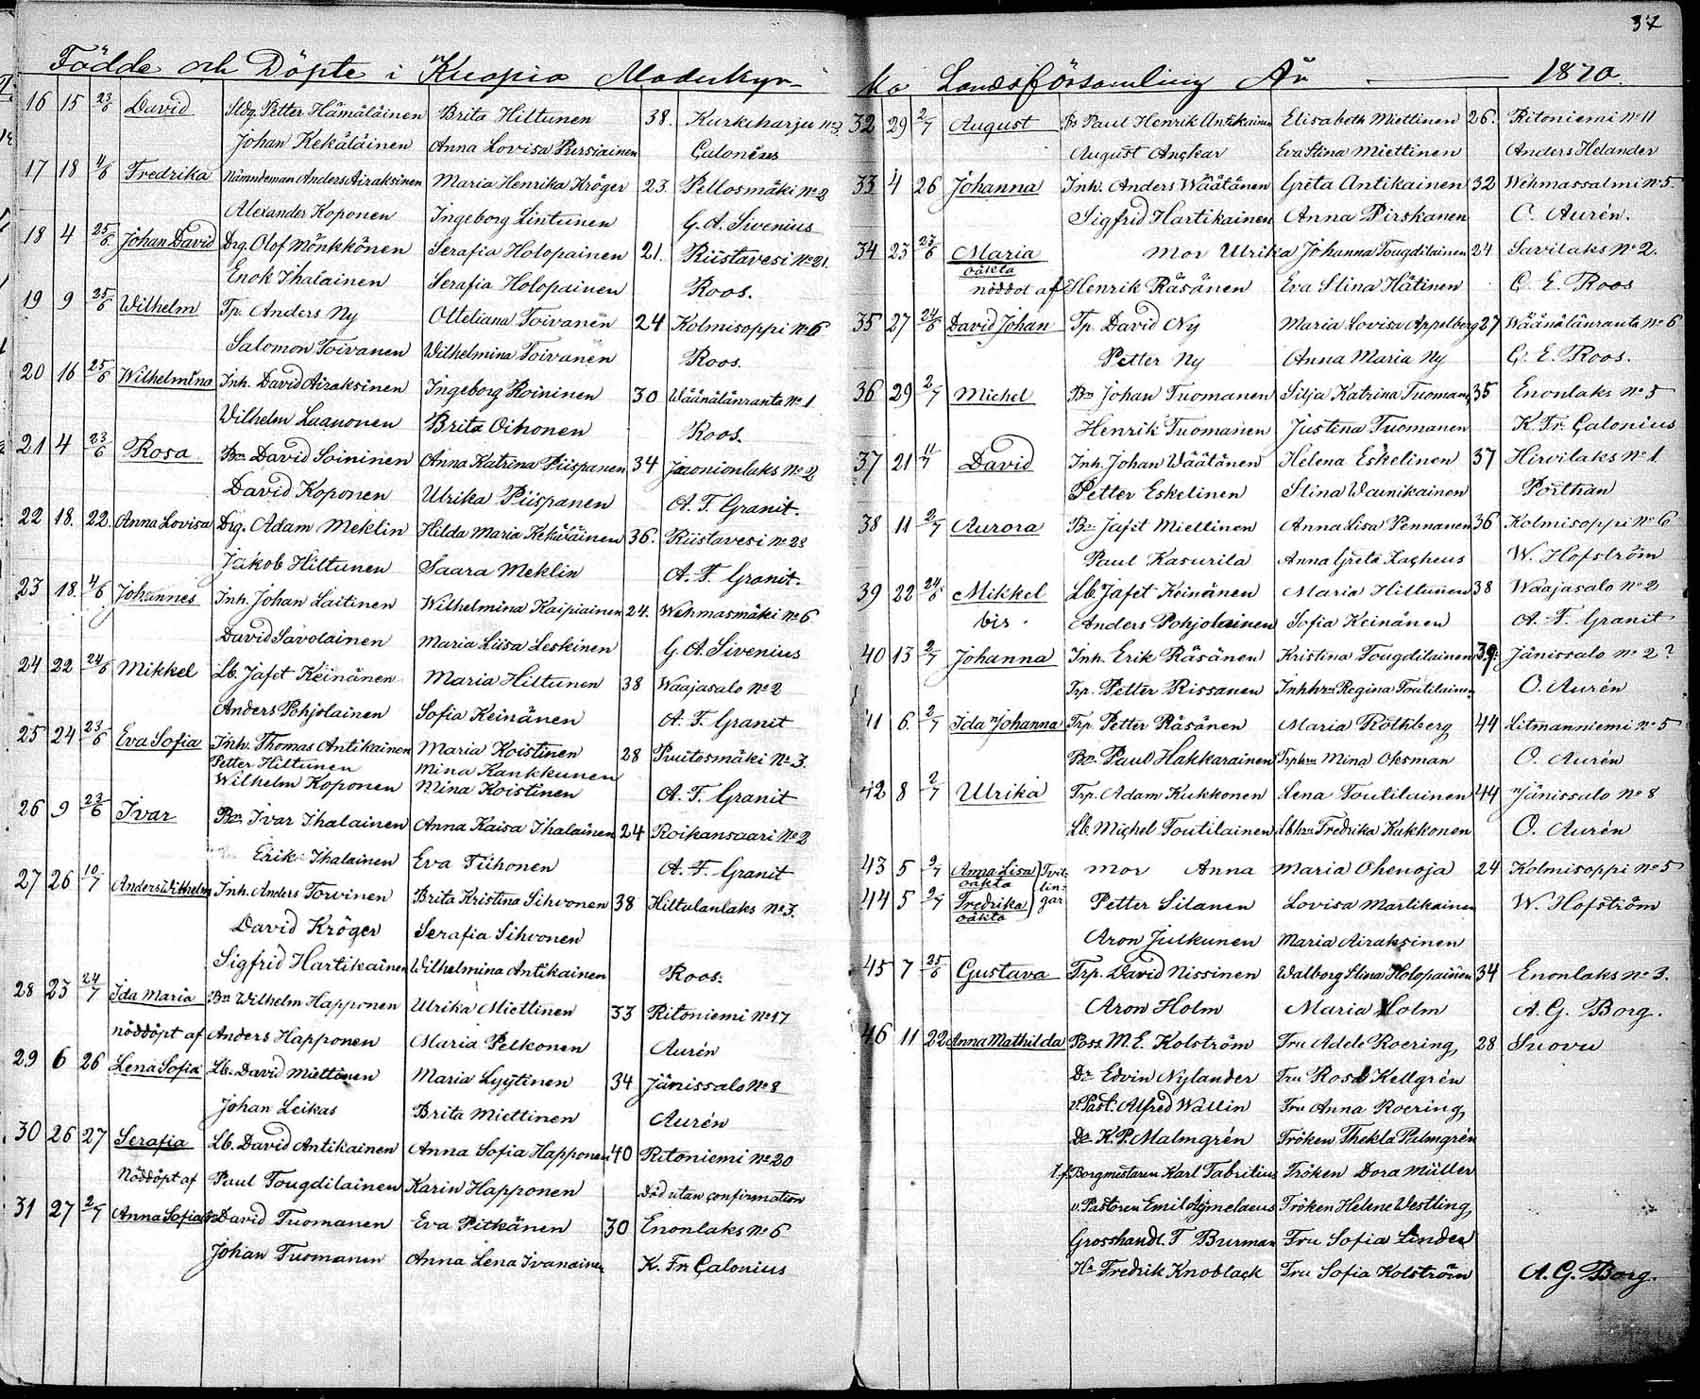 37
Födde och Döpte i Kuopio Moderkyr-
16 15 23/6 David Sldg. Petter Hämäläinen Brita Hiltunen 38. Kurkiharju No 3
Johan Kekäläinen Anna Lovisa Pursiainen Calonius
17 18 4/6 Fredrika Nämndeman Anders Airaksinen Maria Henrika Kröger 23. Pellosmäki No 2
Alexander Koponen Ingeborg Lintunen G. A. Sivenius
18 4 25/6 Johan David Drg. Olof Mönkkönen Serafia Holopainen 21. Riistavesi No 21.
Enok Ihalainen Serafia Holopainen Roos.
19 9 25/6 Wilhelm Tp. Anders Ny Otteliana Toivanen 24 Kolmisoppi No 6
Salomon Toivanen Wilhelmina Toivanen Roos.
20 16 25/6 Wilhelmina Inh. David Airaksinen Ingeborg Roininen 30 Wäänälänranta No 1
Wilhelm Laanonen Brita Oihonen Roos.
21 4 23/6 Rosa Bn David Soininen Anna Katrina Piispanen 34 No 2
David Koponen Ulrika Piispanen A. F. Granit.
22 18. 22. Anna Lovisa Drg. Adam Meklin Hilda Maria Kekäläinen 36. Riistavesi No 28
Jakob Hiltunen Saara Meklin A. F. Granit.
23 18. 4/6 Johannes Inh. Johan Laitinen Wilhelmina Kaipiainen 24. Wehmasmäki No 6
David Savolainen Maria Liisa Leskinen G. A. Sivenius
24 22 24/6 Mikkel Lb. Jafet Keinänen Maria Hiltunen 38 Waajasalo No 2
Anders Pohjolainen Sofia Keinänen A. F. Granit
25 24 23/6 Eva Sofia Inh. Thomas Antikainen Maria Koistinen 28 Puutosmäki No 3.
Petter Hiltunen Mina Kankkunen
Wilhelm Koponen Mina Koistinen A. F. Granit
26 9 23/6 Ivar Bn Ivar Ihalainen Anna Kaisa Ihalainen 24 Roikansaari No 2
Erik Ihalainen Eva Tiihonen A. F. Granit
27 26 10/7 Anders Wilhelm Inh. Anders Torvinen Brita Kristina Sihvonen 38 Hiltulanlaks No 3.
David Kröger Serafia Sihvonen
Sigfrid Hartikainen Wilhelmina Antikainen Roos.
28 23 24/7 Ida Maria Bn Wilhelm Happonen Ulrika Miettinen 33 Ritoniemi No 17
nöddöpt af Anders Happonen Maria Pelkonen Aurén
29 6 26 Lena Sofia Lb. David Miettinen Maria Lyytinen 34 Jänissalo No 8
Johan Leikas Brita Miettinen Aurén
30 26 27 Serafia Lb. David Antikainen Anna Sofia Happonen 40 Ritoniemi No 20
Nöddöpt af Paul Tougdilainen Karin Happonen Död utan confirmation
31 27 2/7 Anna Sofia Bn David Tuomanen Eva Pitkänen 30 Enonlaks No 6
Johan Tuomanen Anna Lena Ivanainen K. Fr Calonius
ka Landsförsamling År 1870.
32 29 2/7 August Bs Paul Henrik Antikainen Elisabeth Miettinen 26. Ritoniemi No 11
August Angkar Eva Stina Miettinen Anders Helander
33 4 26 Johanna Inh. Anders Wäätänen Greta Antikainen 32 Wehmassalmi No 5.
Sigfrid Hartikainen Anna Pirskanen O. Aurén.
34 23 23/6 Maria Mor Ulrika Johanna Tougdilainen 24 Savilaks No 2.
oäkta
nöddöt af Henrik Räsänen Eva Stina Hätinen C. E. Roos
35 27 24/6 David Johan Tp. David Ny Maria Lovisa Appelberg 27 Wäänälänranta No 6
Petter Ny Anna Maria Ny C. E. Roos.
36 29 2/7 Michel Bn Johan Tuomanen Silja Katrina Tuomanen 35 Enonlaks No 5
Henrik Tuomanen Justina Tuomanen K. Fr. Calonius
37 21 11/7 David Inh. Johan Wäätänen Helena Eskelinen 37 Hirvilaks No 1
Petter Eskelinen Stina Wainikainen Porthan
38 11 2/7 Aurora Bn Jafet Miettinen Anna Lisa Pennanen 36 Kolmisoppi No 6
Paul Kasurila Anna Greta Zacheus W. Hofström
39 22 24/6 Mikkel Lb. Jafet Keinänen Maria Hiltunen 38 Waajasalo No 2
bis. Anders Pohjolainen Sofia Keinänen A. F. Granit
40 13 2/7 Johanna Inh. Erik Räsänen Kristina Tougdilainen 39. Jänissalo No 2?
Trp. Petter Rissanen Inhhru Regina Toutilainen O. Aurén
41 6. 2/7 Ida Johanna Trp. Petter Räsänen Maria Rothberg 44 Litmanniemi No 5
Bn. Paul Hakkarainen Trphru Mina Oksman O. Aurén
42 8 2/7 Ulrika Trp. Adam Kukkonen Lena Toutilainen 44 Jänissalo No 8
Lb. Michel Toutilainen Lbhru Fredrika Kukkonen O. Aurén
43 5 9/7 Anna Lisa Tvil- Mor Anna Maria Ohenoja 24 Kolmisoppi No 5
oäkta lin-
44 5 9/7 Fredrika gar Petter Silanen Lovisa Martikainen W. Hofström
oäkta
Aron Julkunen Maria Airaksinen
45 7 25/6 Gustava Trp. David Nissinen Walborg Stina Holopainen 34 Enonlaks No 3.
Aron Holm Maria Holm A. G. Borg.
46 11 22 Anna Mathilda Poss. M. E. Kolström Fru Adele Roering, 28 Suovu
Dr Edvin Nylander Fru Rosa Kellgrén
v. Past. Alfred Wallin Fru Anna Roering,
Dr K. P. Malmgrén Fröken Thekla Palmgrén
T. f. Borgmästaren Karl Fabritius Fröken Dora Müller
v. Pastoren Emil Agmelaeus Fröken Helene Westling,
Grosshandl. T Burman Fru Sofia Linder
Hr Fredrik Knoblack Fru Sofia Kolström A. G. Borg.